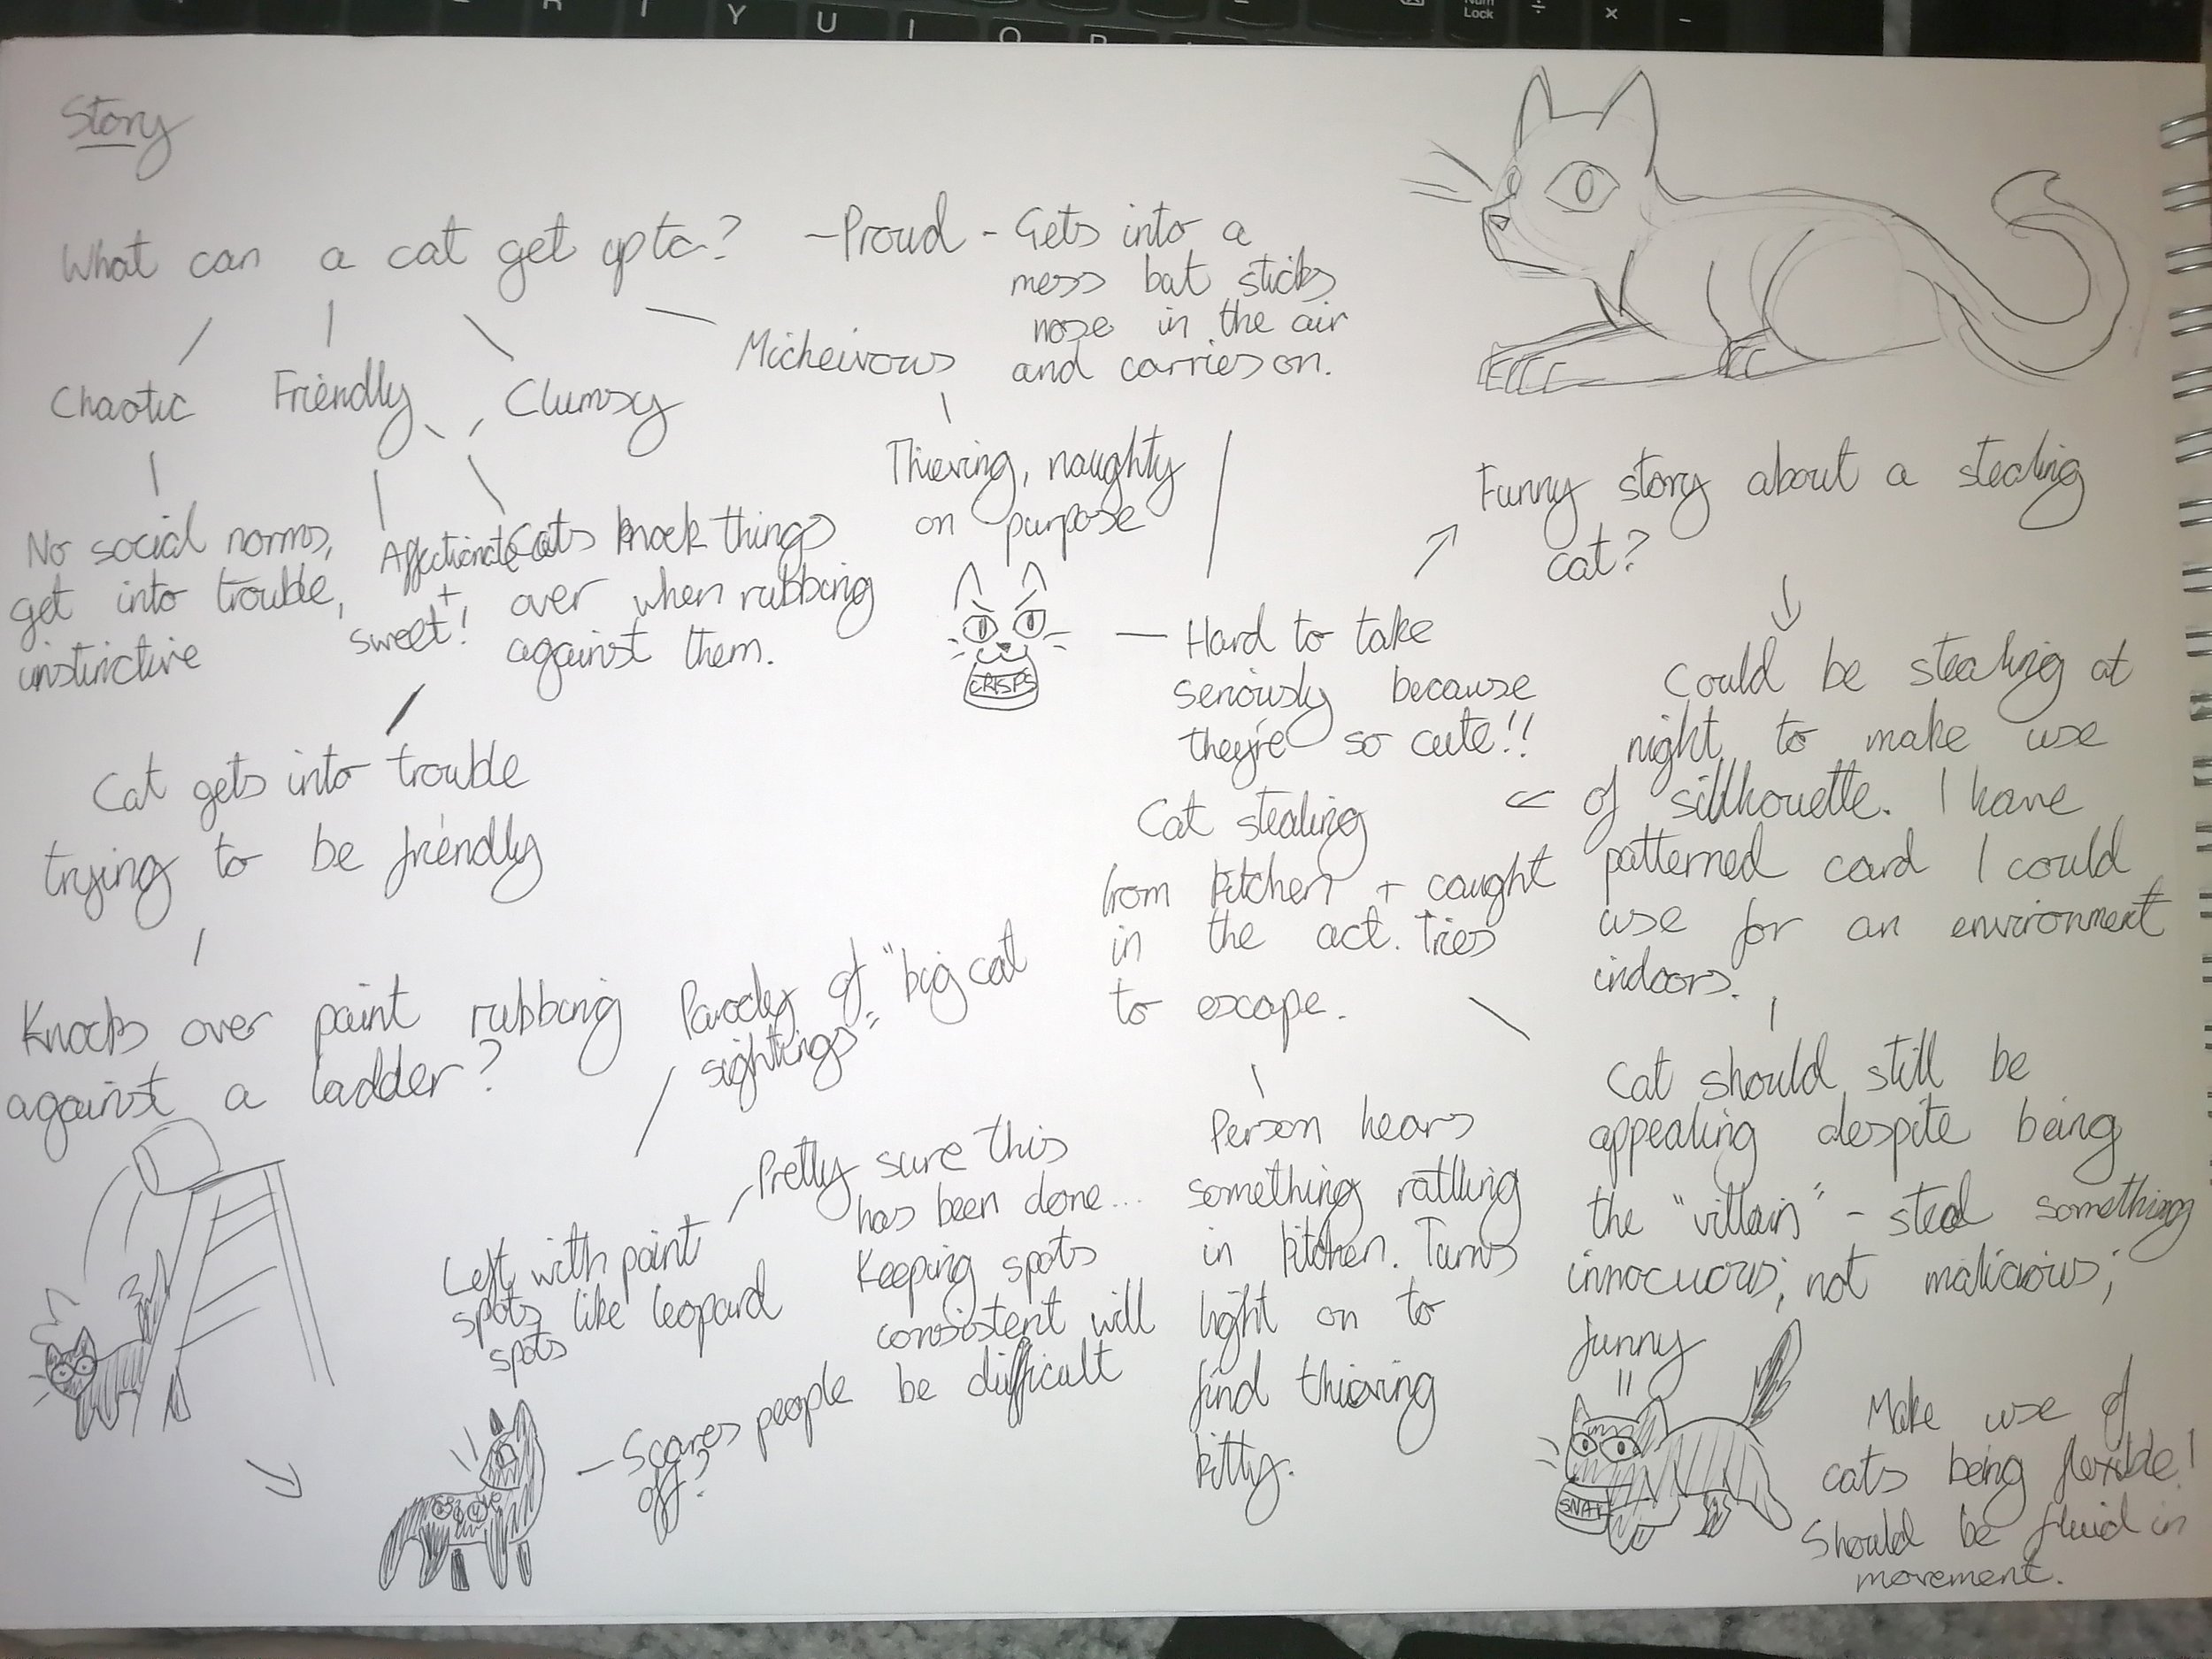 Num
Lock
÷
×
-
R
I
Y
U
I
O
P
Story
What can a cat get upto?
Chaotic
No social norms,
get into trouble,
instinctive
Friendly
Affectionate
+
sweet!
Clumsy
Cats knock things
over when rubbing
against them.
Micheivous
Thieving, naughty
on purpose
CRISPS
- Proud - Gets into a
mess but sticks
nose in the air
and carries on.
Cat gets into trouble
trying to be friendly
Knocks over paint rubbing
against a ladder?
Left with paint
spots like leopard
spots
Parody of "big cat
sightings"
Pretty sure this
has been done...
Keeping spots
consistent will
be difficult
- Scares people
off?
- Hard to take
seriously because
they're so cute!!
Funny story about a stealing
cat?
Could be stealing at
night to make use
of sillhouette. I have
patterned card I could
use for an environment
indoors.
Cat stealing
from kitchen + caught
in the act. Tries
to escape.
Person hears
something rattling
in kitchen. Turns
light on to
find thieving
kitty.
Cat should still be
appealing despite being
the "villain" - steal something
innocuous; not malicious;
funny
SNAK
Make use of
cats being flexible!
Should be fluid in
movement.